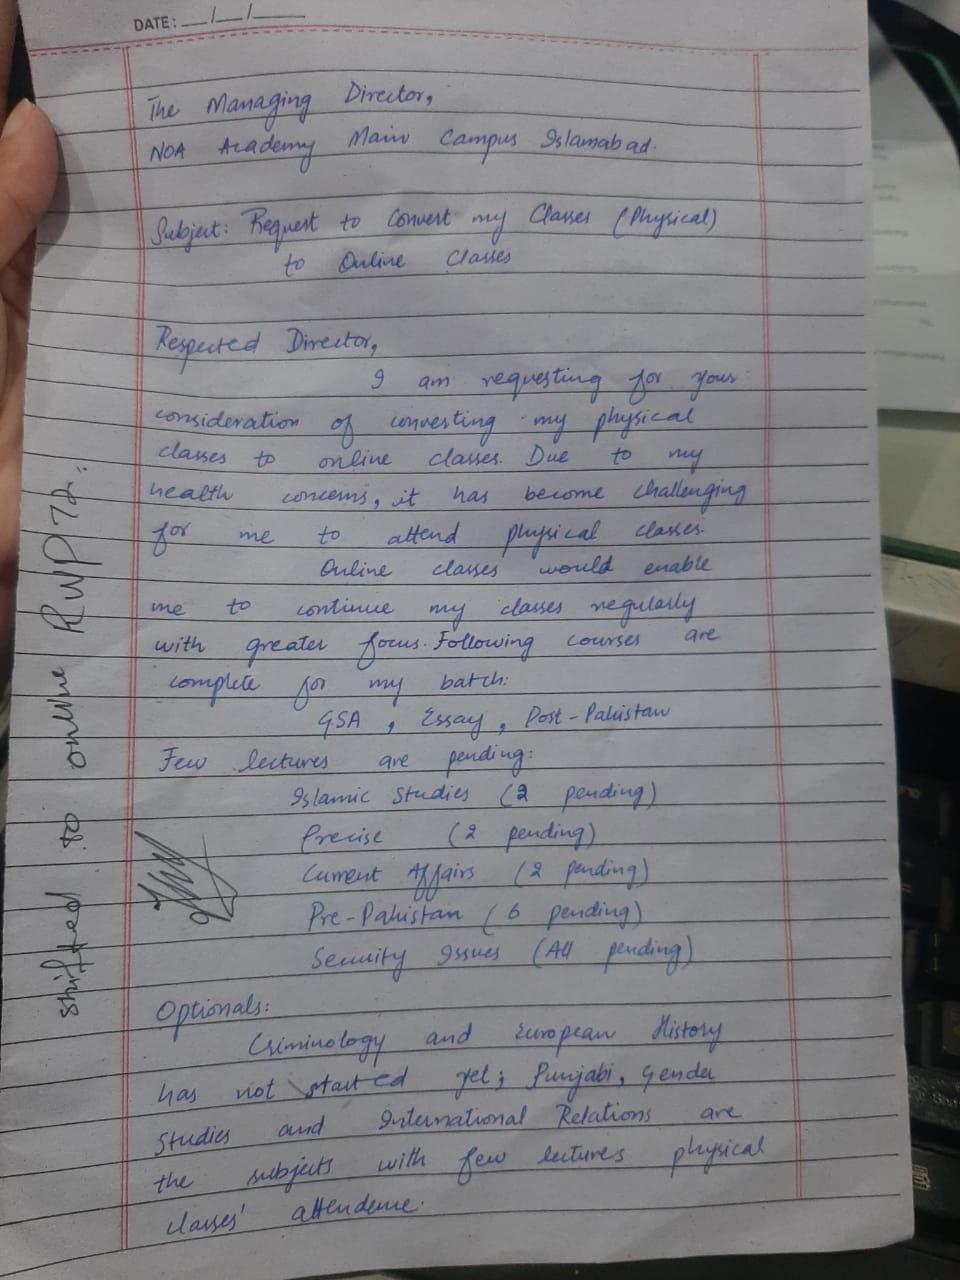 DATE: __/__/____
The Managing Director,
NOA Academy Main Campus Islamabad.
Subject: Request to Convert my Classes (Physical)
to Online Classes
Respected Director,
I am requesting for your
consideration of converting my physical
classes to online classes. Due to my
health concerns, it has become challenging
for me to attend physical classes.
Online classes would enable
me to continue my classes regularly
with greater focus. Following courses are
complete for my batch:
GSA, Essay, Post-Pakistan
Few lectures are pending:
Islamic Studies (2 pending)
Precise (2 pending)
Current Affairs (2 pending)
Pre-Pakistan (6 pending)
Security Issues (All pending)
Optionals:
Criminology and European History
has not started yet; Punjabi, Gender
Studies and International Relations are
the subjects with few lectures physical
classes' attendence.
Shifted to online RWP72.